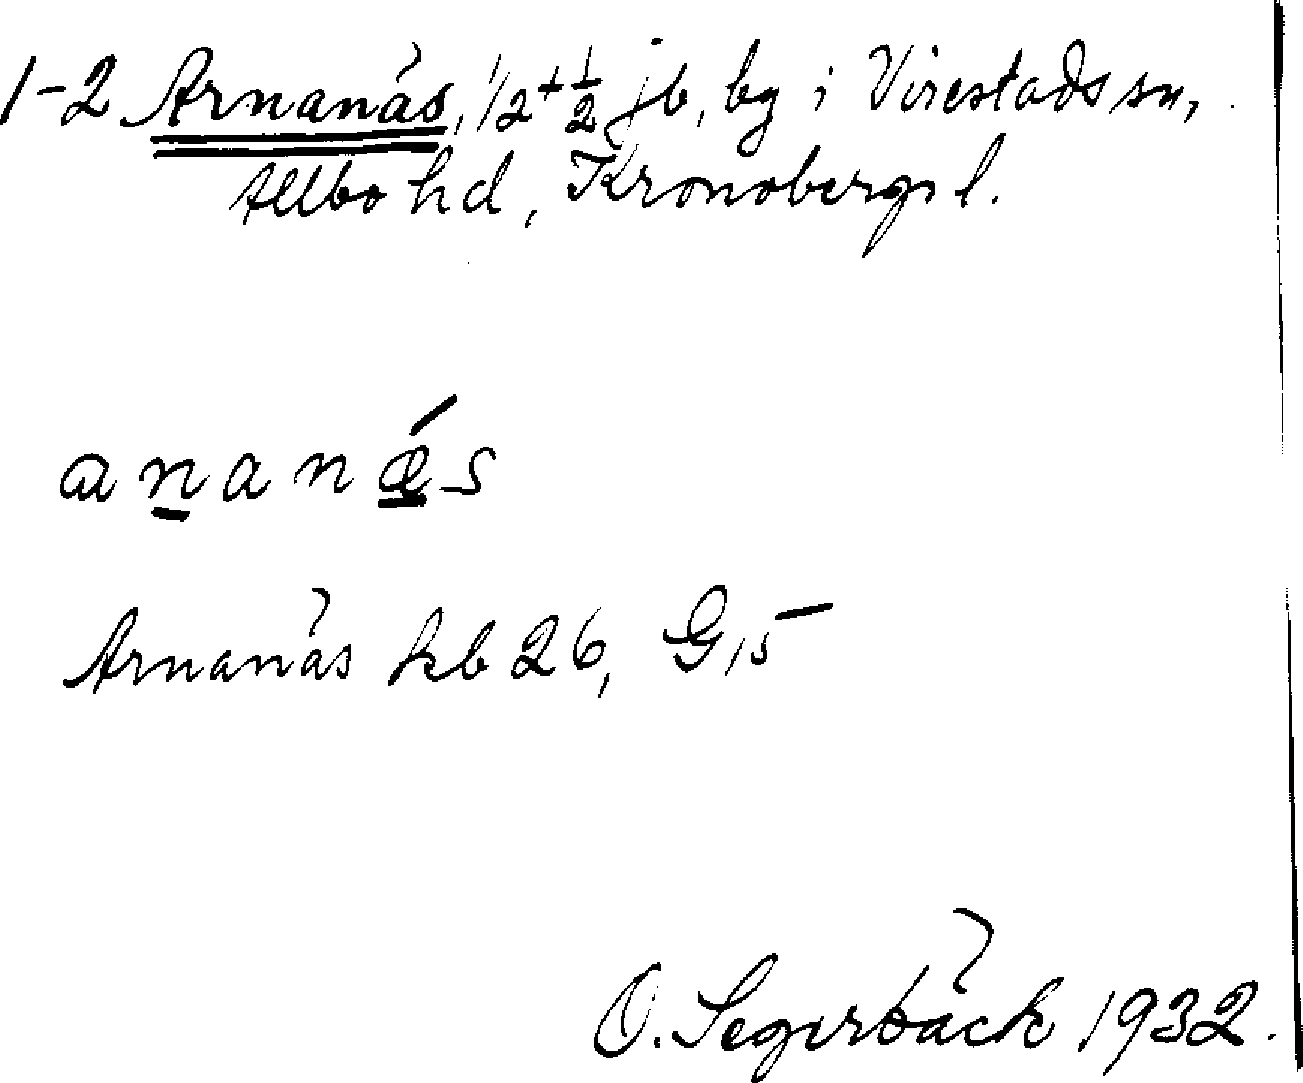 1-2 Arnanäs, 1/2 + 1/2 jb, by i Virestads sn,
Allbo hd, Kronobergs l.
ananǽs
Arnanäs kb 26, G 15
O. Segerbäck 1932.